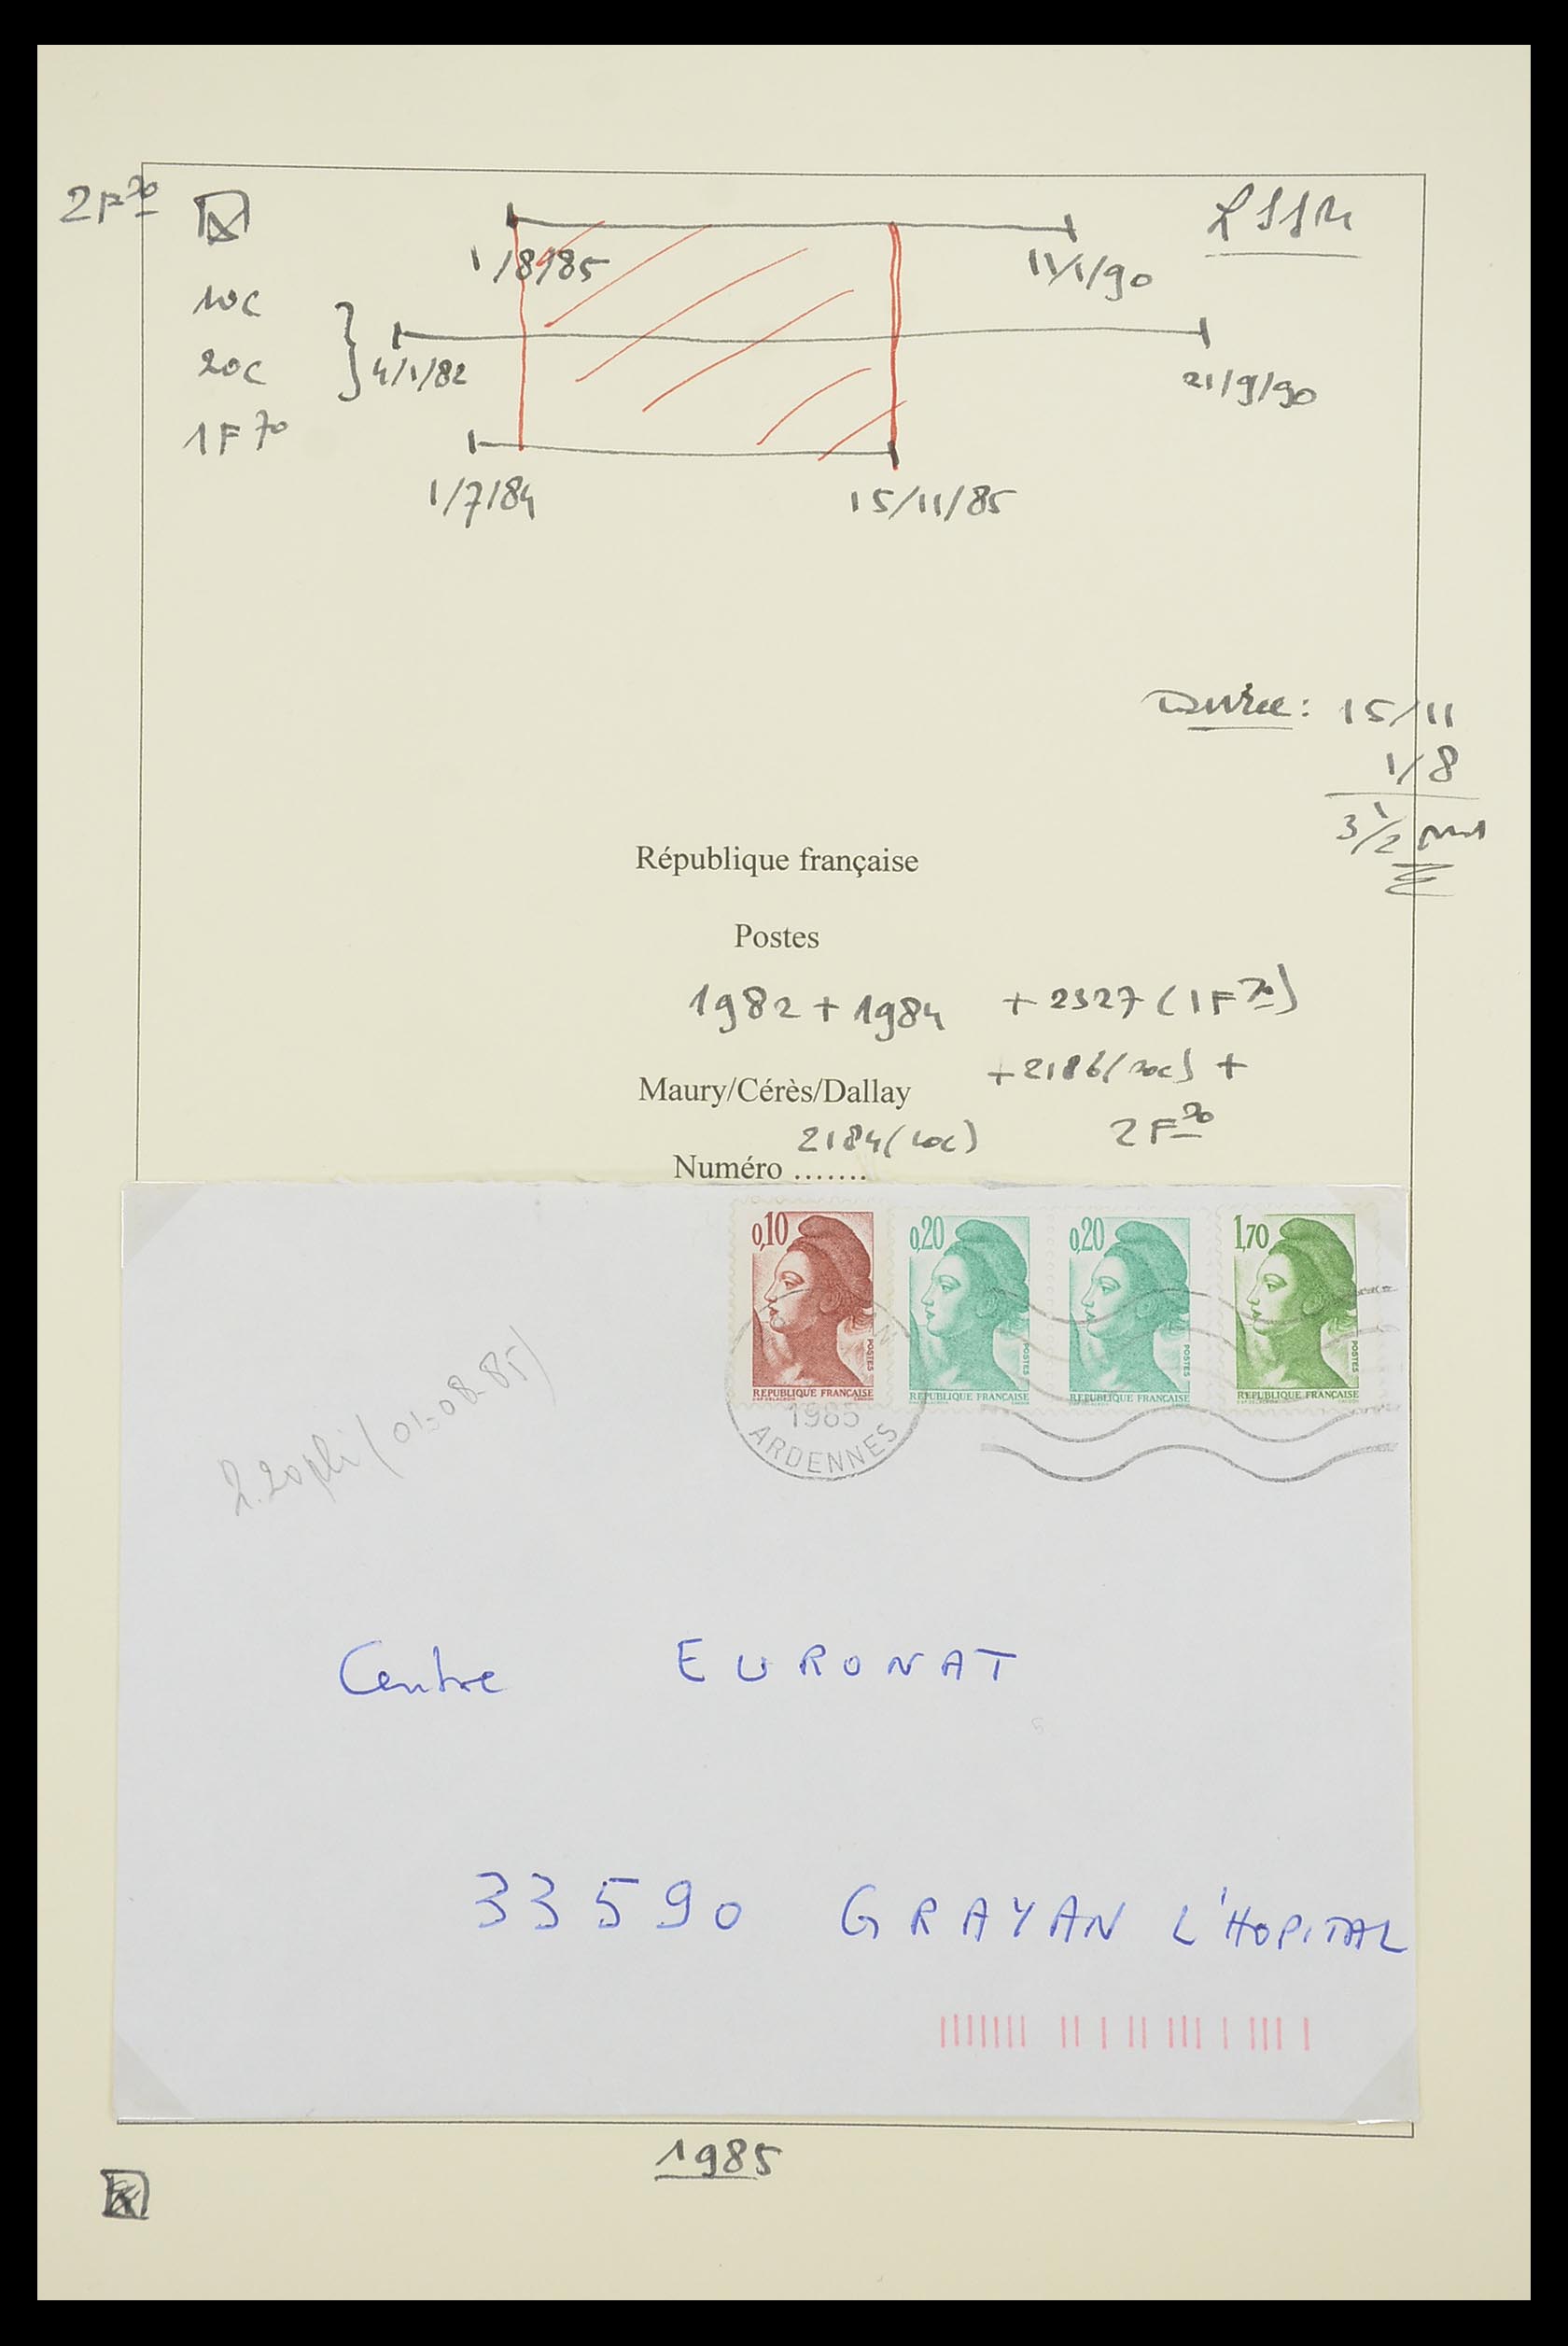 2F70
1/8/85
11/1/90
10c
20c
4/1/82
21/9/90
1F70
1/7/84
15/11/85
Durée: 15/11
1/8
3 1/2
République française
Postes
1982 + 1984 + 2327 (1F70)
+ 2186 (20c) +
Maury/Cérès/Dallay
2F70
2184 (10c)
Numéro .......
0,10
0,20
0,20
1,70
POSTES
POSTES
POSTES
POSTES
REPUBLIQUE FRANÇAISE
REPUBLIQUE FRANÇAISE
REPUBLIQUE FRANÇAISE
REPUBLIQUE FRANÇAISE
1985
ARDENNES
2.20 pli (01-08-85)
Centre EURONAT
33590 GRAYAN L'HOPITAL
1985